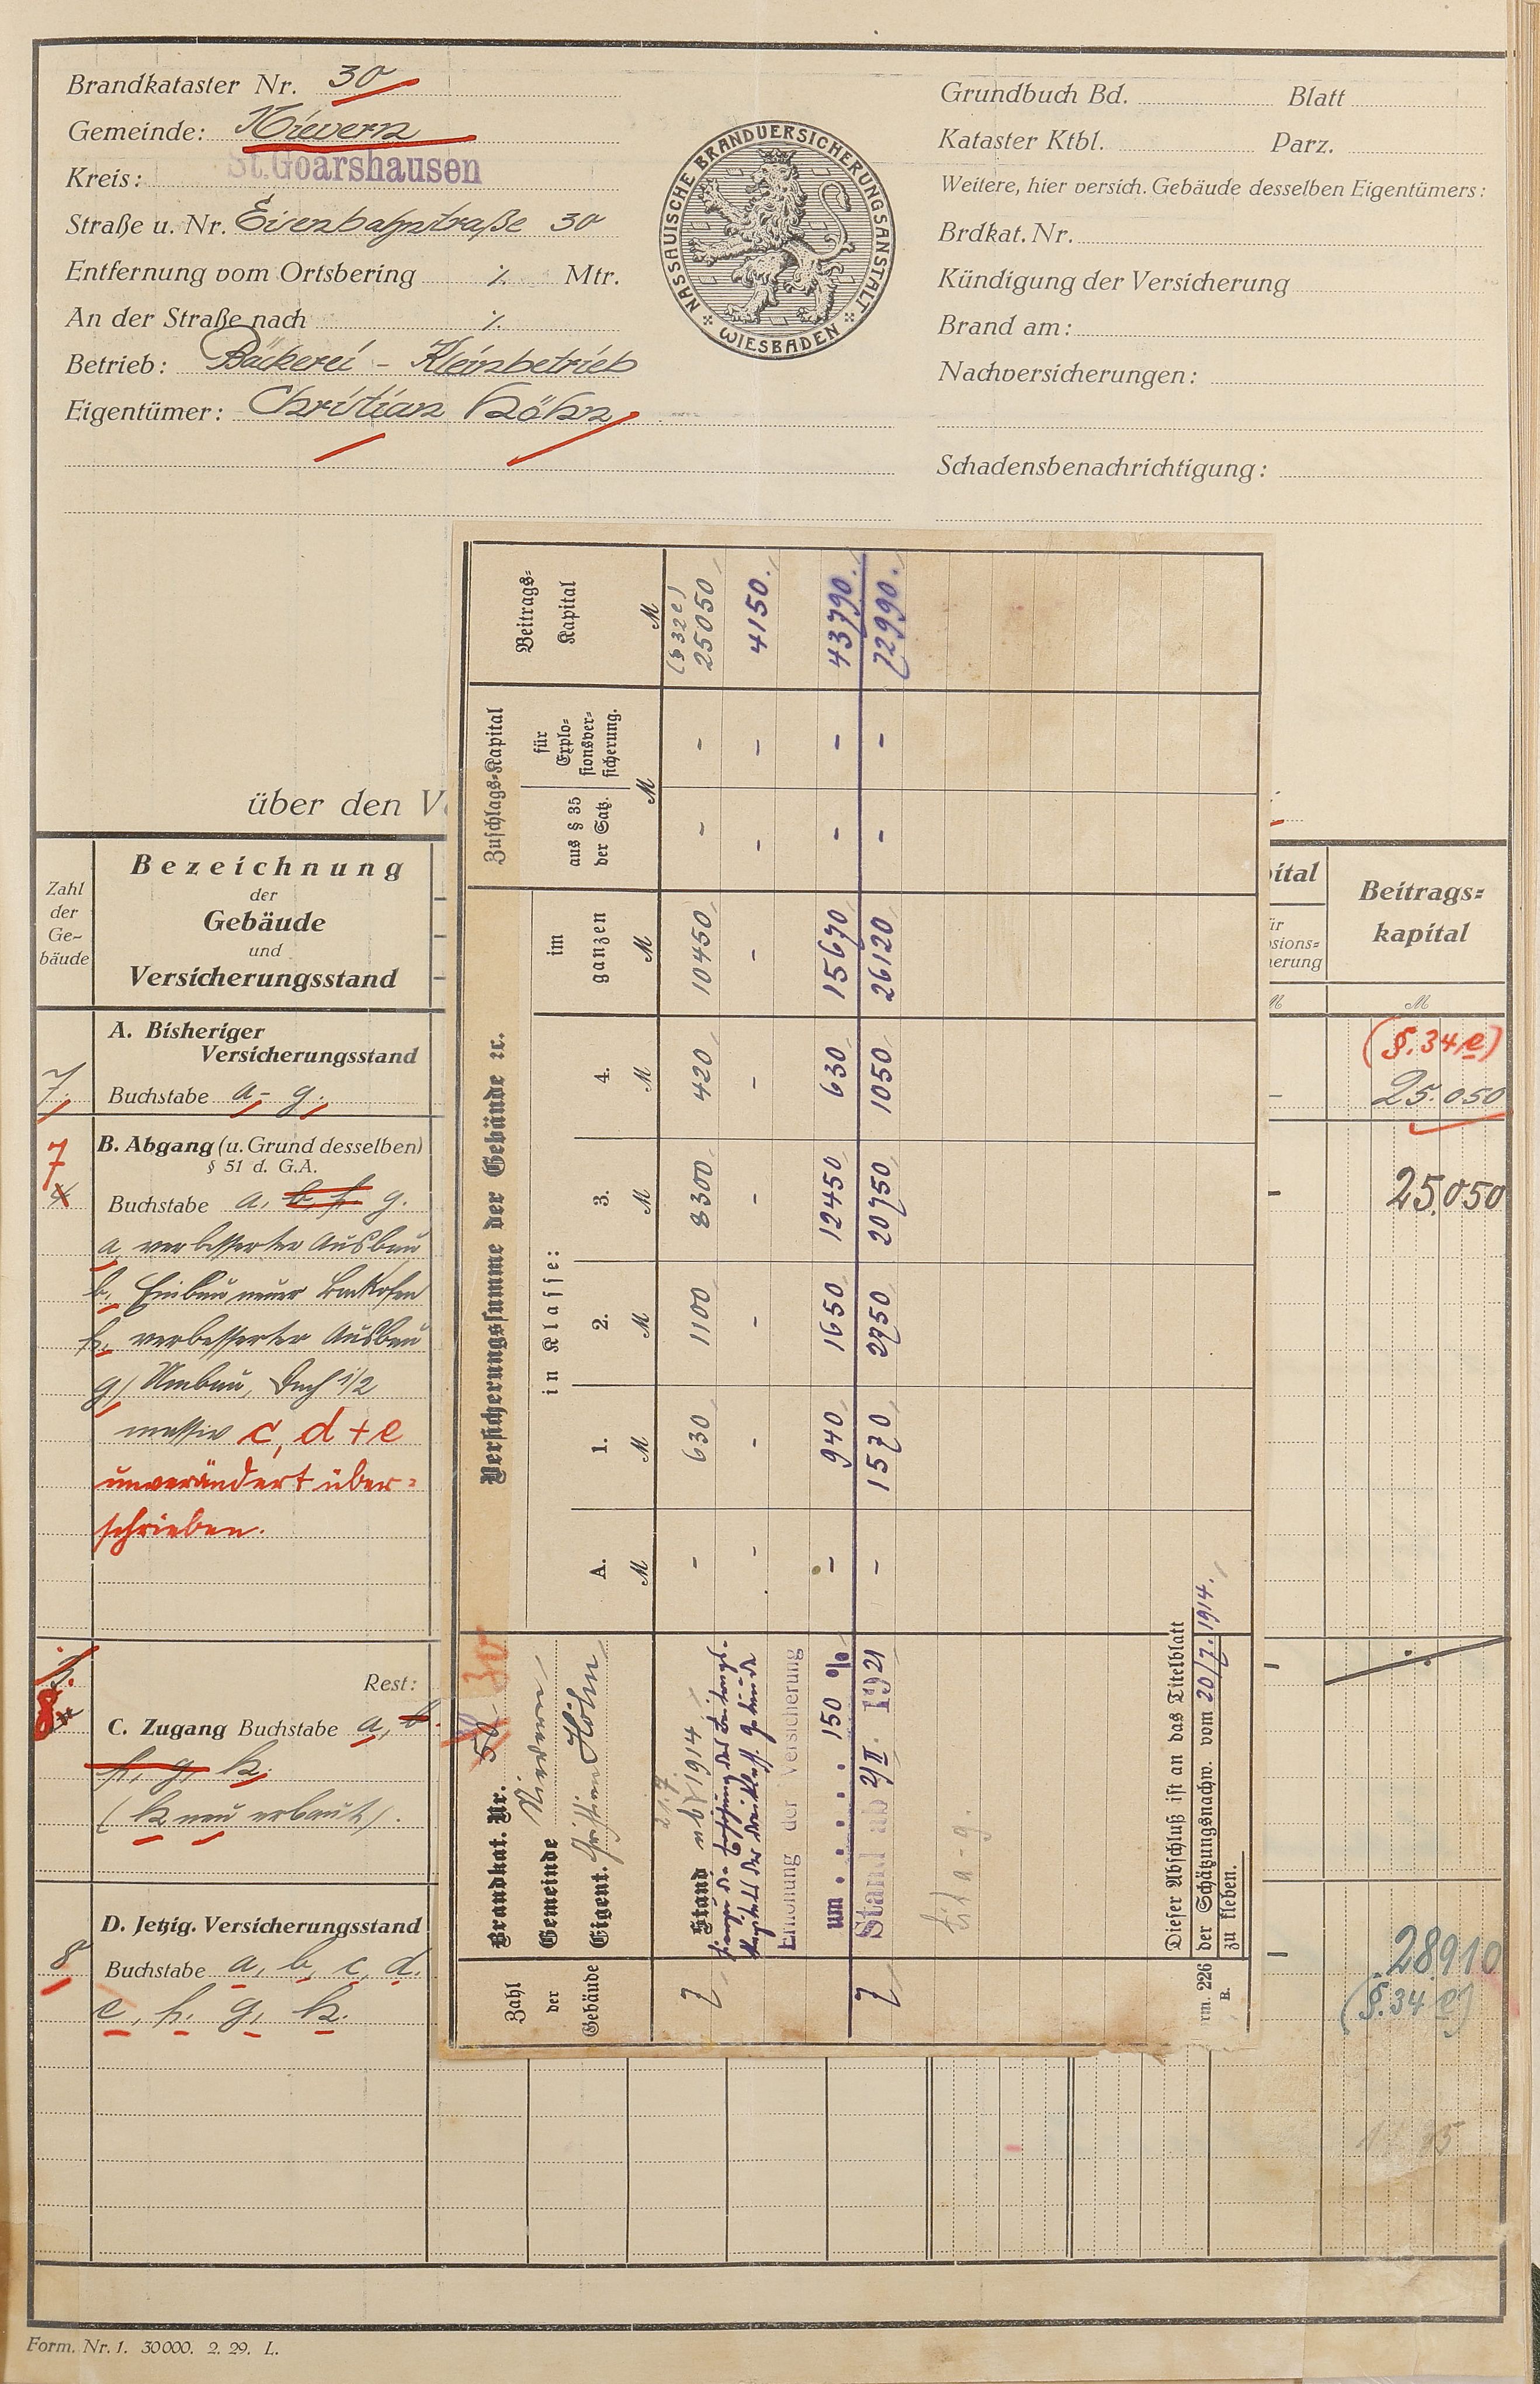 Brandkataster Nr. 30
Gemeinde: Nievern
Kreis: St.Goarshausen
Straße u. Nr. Eisenbahnstraße 30
Entfernung vom Ortsbering ./. Mtr.
An der Straße nach ./.
Betrieb: Bäckerei - Kleinbetrieb
Eigentümer: Christian Höhn
NASSAUISCHE BRANDVERSICHERUNGSANSTALT
WIESBADEN
Grundbuch Bd. Blatt
Kataster Ktbl. Parz.
Weitere, hier versich. Gebäude desselben Eigentümers:
Brdkat. Nr.
Kündigung der Versicherung
Brand am:
Nachversicherungen:
Schadensbenachrichtigung:
über den V
Zahl der Ge-bäude
Bezeichnung
der
Gebäude
und
Versicherungsstand
ital
ür
sions=
herung
M
Beitrags=
kapital
M
A. Bisheriger
Versicherungsstand
7. Buchstabe a - g.
(§. 34 e)
- 25.050
B. Abgang (u. Grund desselben)
§ 51 d. G.A.
7
4 Buchstabe a, b, f, g.
- 25.050
a, verbesserter Ausbau
b, Einbau neuer Backofen
f, verbesserter Ausbau
g) Umbau, Dach 1/2
massiv c, d + e
unverändert über=
schrieben.
Rest:
-
8 C. Zugang Buchstabe a, b.
f, g, h.
(h neu erbaut).
D. Jetzig. Versicherungsstand
8 Buchstabe a, b, c, d.
e, f, g, h.
- 28910
(§. 34 e)
Form. Nr. 1. 30000. 2. 29. L.
Zahl
der
Gebäude
Brandkat. Nr. 58 30
Gemeinde Nievern
Eigent. Christian Höhn
Versicherungssumme der Gebäude ꝛc.
in Klasse:
A.
M
1.
M
2.
M
3.
M
4.
M
im
ganzen
M
Zuschlags=Kapital
aus § 35
der Satz.
für
Explo=
sionsver=
sicherung.
M
Beitrags=
Kapital
M
(§ 32 e)
21.7.
7 Stand ab 1914 - 630 1100 8300 420 10450 - - 25050
- - - - - - - - 4150.
Erhöhung der Versicherung
um . . . . . . 150 % - 940 1650 12450 630 15670 - - 43790.
7 Stand ab 2/II. 1921 - 1570 2750 20750 1050 26120 - - 72990.
Lit a - g.
Dieser Abschluß ist an das Titelblatt
der Schätzungsnachw. vom 20/7. 1914.
zu kleben.
rm. 226
B.